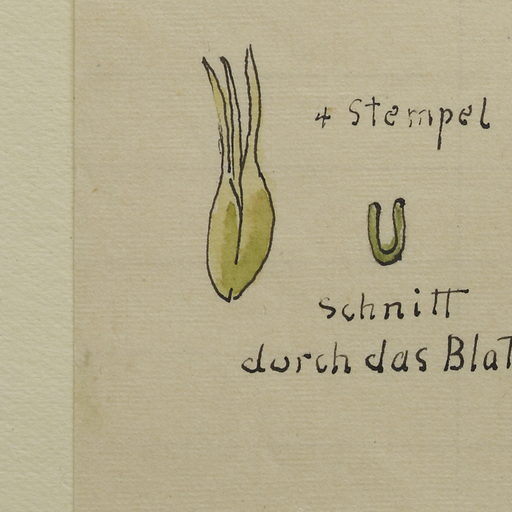 4 Stempel
Schnitt
durch das Blat